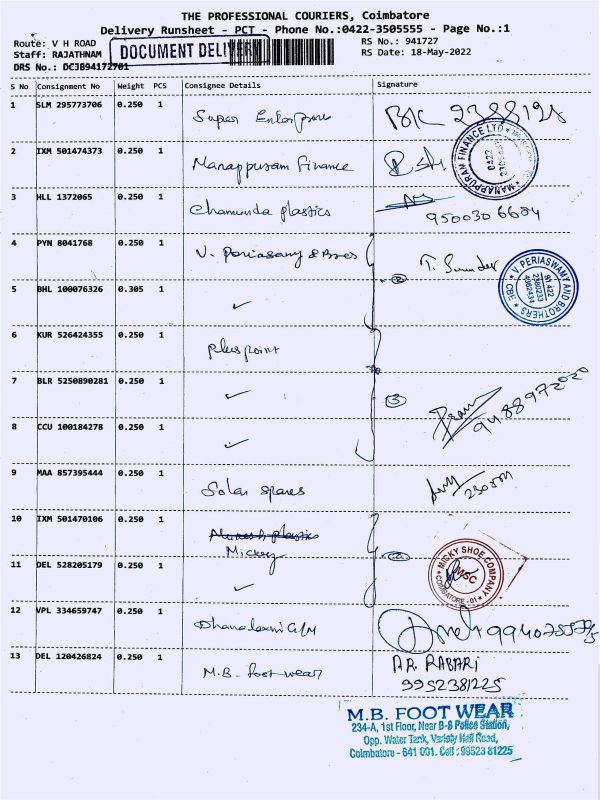 THE PROFESSIONAL COURIERS, Coimbatore
Delivery Runsheet - PCT - Phone No.:0422-3505555 - Page No.:1
Route: V H ROAD
Staff: RAJATHNAM
DRS No.: DCJB94172701
DOCUMENT DELIVERY
RS No.: 941727
RS Date: 18-May-2022
S No Consignment No Weight PCS Consignee Details Signature
1 SLM 295773706 0.250 1 Super Enterprises
2 IXM 501474373 0.250 1 Manappuram Finance
MANAPPURAM FINANCE LTD
0422
3 HLL 1372065 0.250 1 Chamunda plastics 9500306684
4 PYN 8041768 0.250 1 V. Periasamy & Bros T. Sunder
V. PERIASWAMY AND BROTHERS
CBE
91 422
2380233
4062434
5 BHL 100076326 0.305 1 ✓
6 KUR 526424355 0.250 1 plus point
7 BLR 5250890281 0.250 1 ✓ 3 9488972020
8 CCU 100184278 0.250 1 ✓
9 MAA 857395444 0.250 1 Solar spares
10 IXM 501470106 0.250 1 Mickey
MICKY SHOE COMPANY
MSC
COIMBATORE - 01
11 DEL 528205179 0.250 1 ✓
12 VPL 334659747 0.250 1 Dhanalaxmi
13 DEL 120426824 0.250 1 M.B. foot wear
RABARI
9952381225
M.B. FOOT WEAR
234-A, 1st Floor, Near B-8 Police Station,
Opp. Water Tank, Variety Hall Road,
Coimbatore - 641 001. Cell : 99523 81225